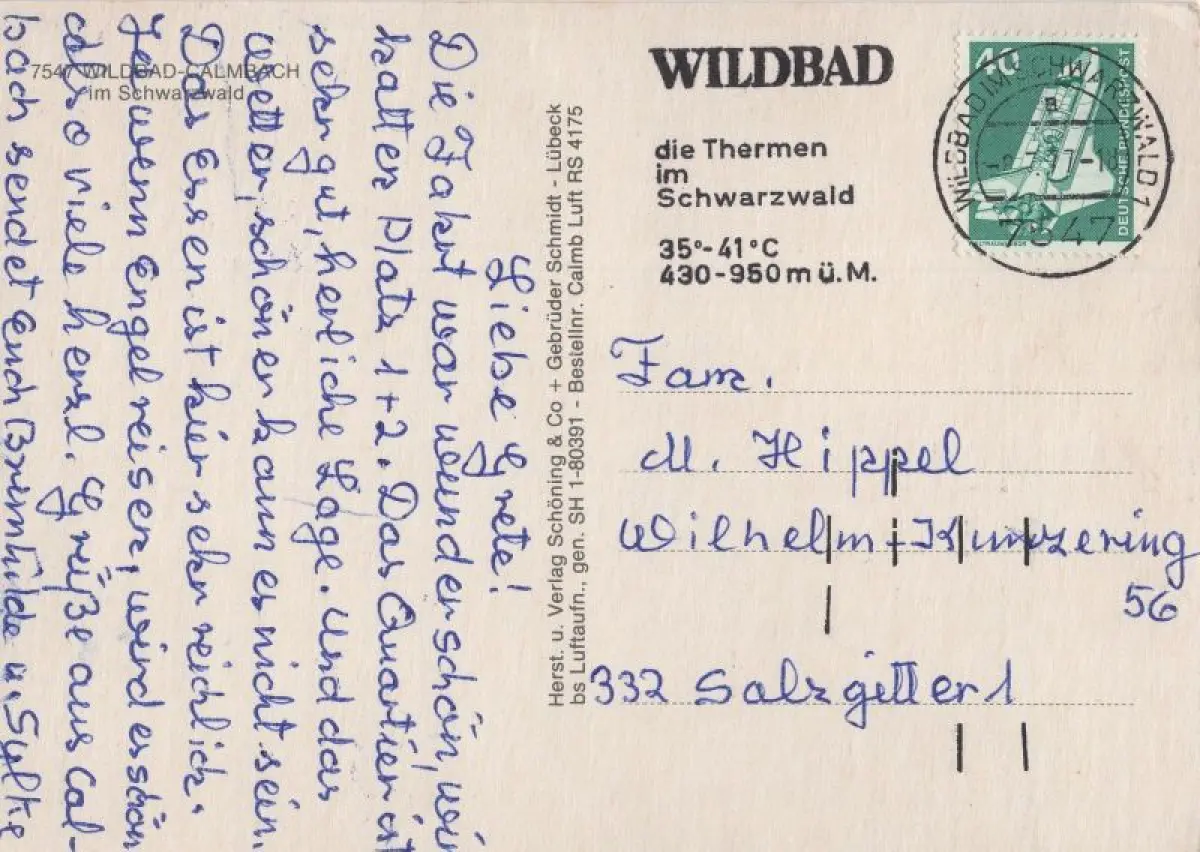 7547 WILDBAD-CALMBACH
im Schwarzwald
Liebe Grete!
Die Fahrt war wunderschön, wir
hatten Platz 1+2. Das Quartier ist
sehr gut, herliche Lage. Und das
Wetter, schöner kann es nicht sein.
Das Essen ist hier sehr reichlich.
Ja wenn Engel reisen, wird es schön
also viele herzl. Grüße aus Cal-
bach sendet Euch Brunhilde u. Sylke
Herst. u. Verlag Schöning & Co + Gebrüder Schmidt - Lübeck
bs Luftaufn., gen. SH 1-80391 - Bestellnr. Calmb Luft RS 4175
WILDBAD
die Thermen
im
Schwarzwald
35°-41°C
430-950m ü.M.
40
DEUTSCHE BUNDESPOST
WILDBAD IM SCHWARZWALD 1
a
7547
Fam.
M. Hippel
Wilhelm-Kunzering
56
332 Salzgitter 1